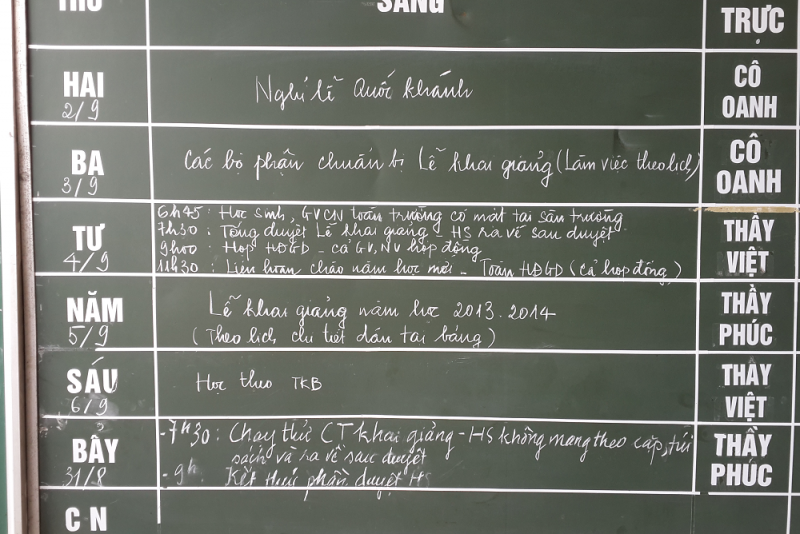 THỨ SÁNG TRỰC
HAI 2/9 Nghỉ lễ Quốc khánh CÔ OANH
BA 3/9 Các bộ phận chuẩn bị Lễ khai giảng (Làm việc theo lịch) CÔ OANH
TƯ 4/9 6h45: Học sinh, GVCN toàn trường có mặt tại sân trường
7h30: Tổng duyệt Lễ khai giảng - HS ra về sau duyệt
9h00: Họp HĐGD - cả GV, NV hợp đồng
11h30: Liên hoan chào năm học mới - Toàn HĐGD (cả hợp đồng)
THẦY VIỆT
NĂM 5/9 Lễ khai giảng năm học 2013-2014
(Theo lịch chi tiết dán tại bảng)
THẦY PHÚC
SÁU 6/9 Học theo TKB THẦY VIỆT
BẢY 31/8 -7h30: Chạy thử CT khai giảng - HS không mang theo cặp, túi
sách và ra về sau duyệt
- 9h Kết thúc phần duyệt HS
THẦY PHÚC
CN